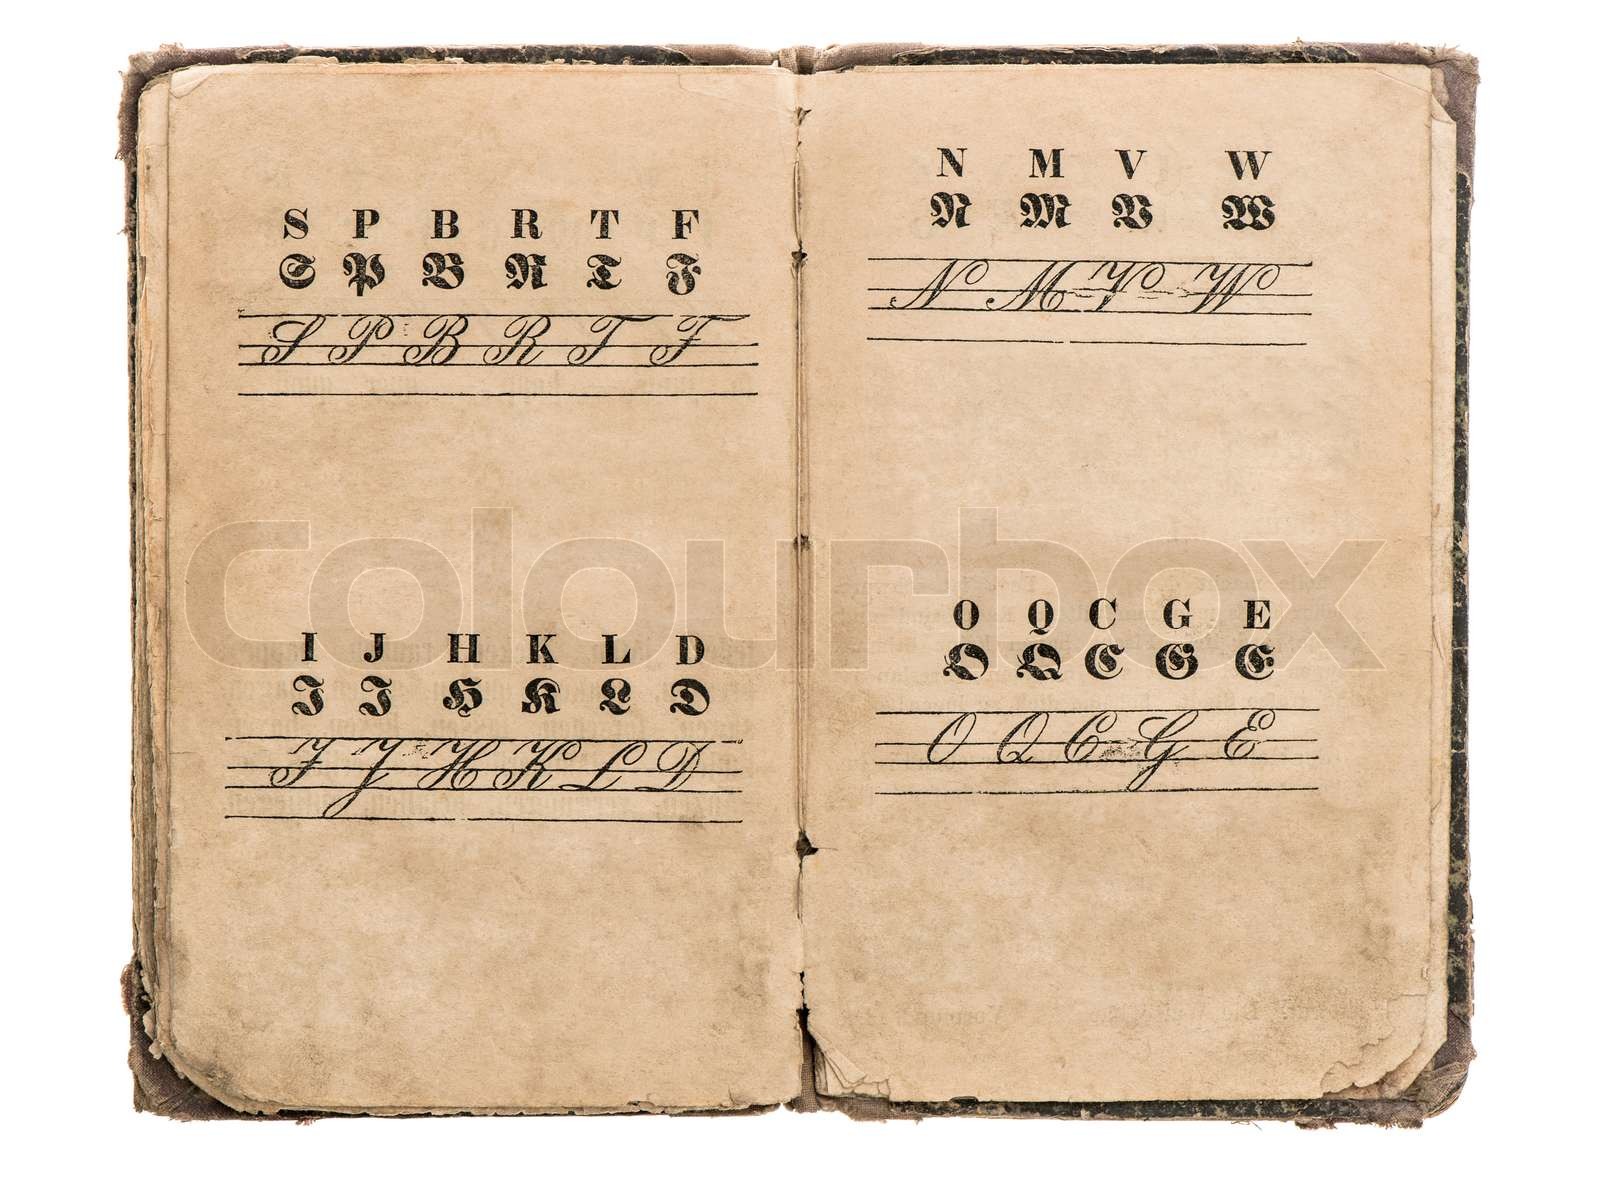 S P B R T F
S P B R T F
S P B R T F
I J H K L D
I J H K L D
I J H K L D
N M V W
N M V W
N M V W
O Q C G E
O Q C G E
O Q C G E
colourbox